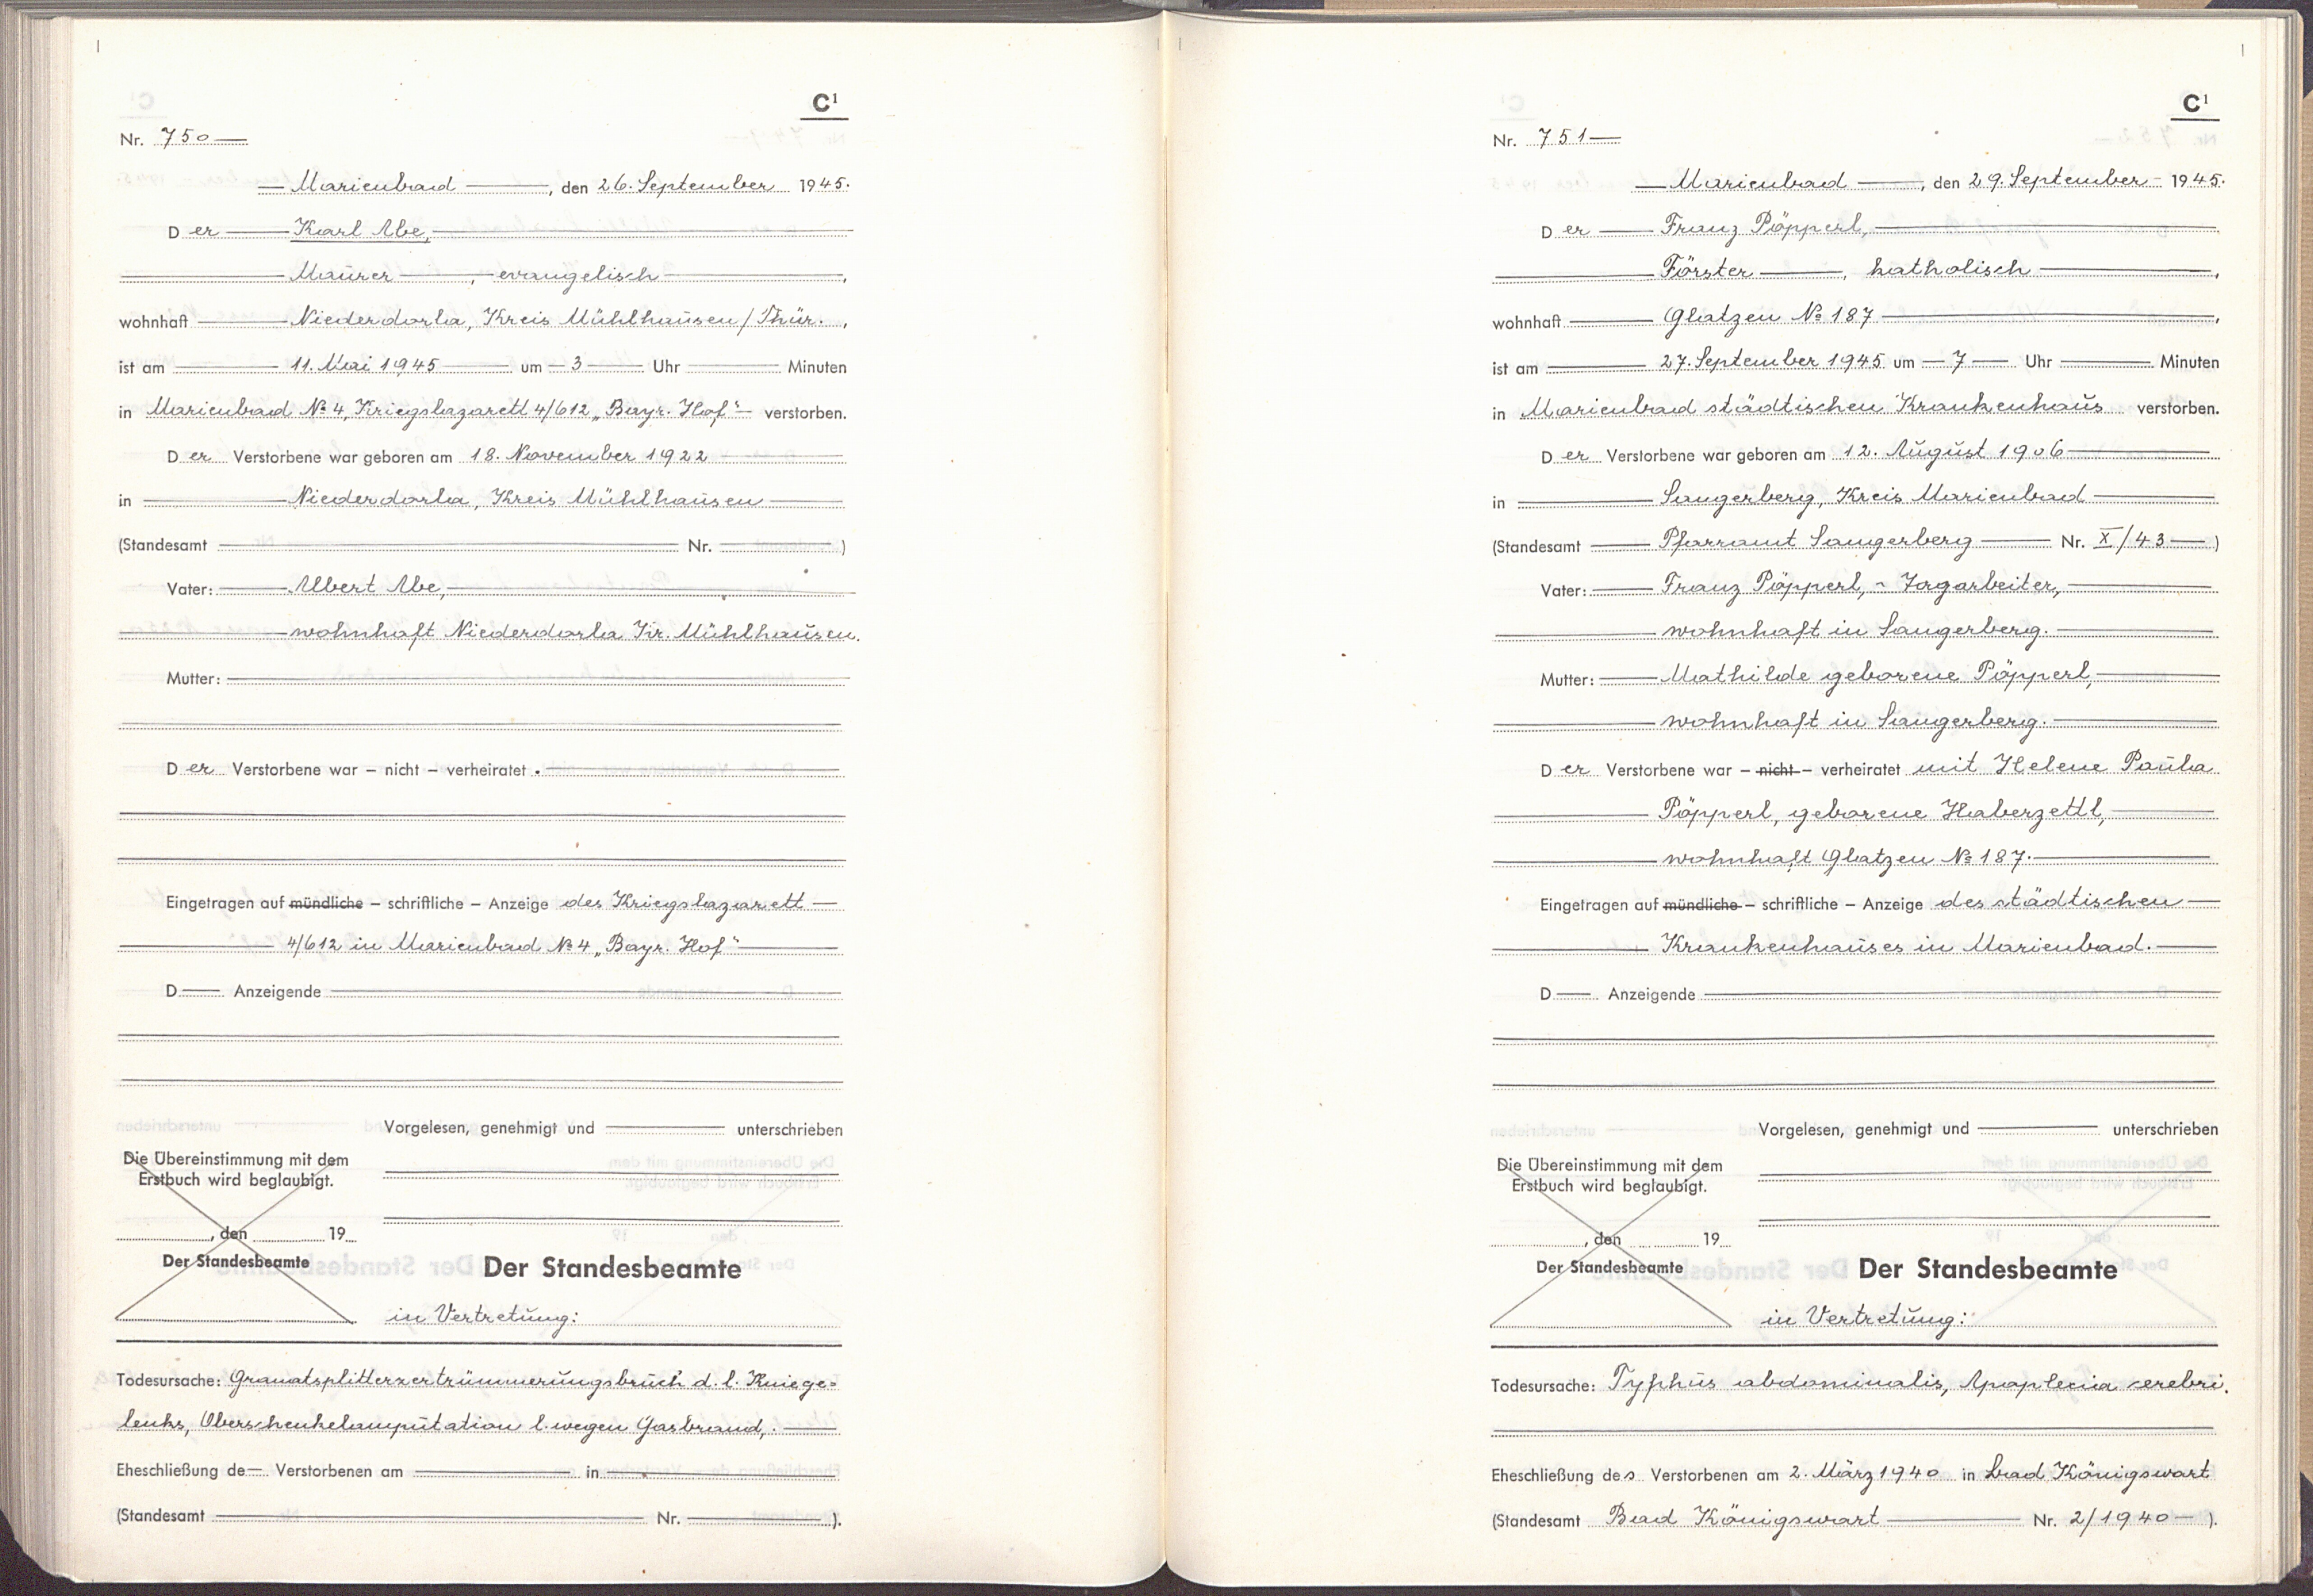 C¹
Nr. 750
Marienbad, den 26. September 1945.
Der Karl Abe,
Maurer, evangelisch,
wohnhaft Niederdorla, Kreis Mühlhausen/Thür.,
ist am 11. Mai 1945 um 3 Uhr Minuten
in Marienbad No 4, Kriegslazarett 4/612 „Bayr. Hof" verstorben.
Der Verstorbene war geboren am 18. November 1922
in Niederdorla, Kreis Mühlhausen
(Standesamt Nr. )
Vater: Albert Abe,
wohnhaft Niederdorla Kr. Mühlhausen.
Mutter:
Der Verstorbene war – nicht – verheiratet.
Eingetragen auf mündliche – schriftliche – Anzeige des Kriegslazarett
4/612 in Marienbad No 4 „Bayr. Hof"
D Anzeigende
Vorgelesen, genehmigt und unterschrieben
Die Übereinstimmung mit dem
Erstbuch wird beglaubigt.
, den 19
Der Standesbeamte
Der Standesbeamte
in Vertretung:
Todesursache: Granatsplitterzertrümmerungsbruch d. l. Kniege-
lenks, Oberschenkelamputation l. wegen Gasbrand,.
Eheschließung de Verstorbenen am in
(Standesamt Nr. ).
C¹
Nr. 751
Marienbad, den 29. September 1945.
Der Franz Pöpperl,
Förster, katholisch,
wohnhaft Glatzen No 187,
ist am 27. September 1945 um 7 Uhr Minuten
in Marienbad städtischen Krankenhaus verstorben.
Der Verstorbene war geboren am 12. August 1906
in Sangerberg, Kreis Marienbad
(Standesamt Pfarramt Sangerberg Nr. X/43 )
Vater: Franz Pöpperl, - Tagarbeiter,
wohnhaft in Sangerberg.
Mutter: Mathilde geborene Pöpperl,
wohnhaft in Sangerberg.
Der Verstorbene war – nicht – verheiratet mit Helene Paula
Pöpperl, geborene Haberzettl,
wohnhaft Glatzen No 187.
Eingetragen auf mündliche – schriftliche – Anzeige des städtischen
Krankenhauses in Marienbad.
D Anzeigende
Vorgelesen, genehmigt und unterschrieben
Die Übereinstimmung mit dem
Erstbuch wird beglaubigt.
, den 19
Der Standesbeamte
Der Standesbeamte
in Vertretung:
Todesursache: Typhus abdominalis, Apoplexia cerebri.
Eheschließung des Verstorbenen am 2. März 1940 in Bad Königswart
(Standesamt Bad Königswart Nr. 2/1940 ).